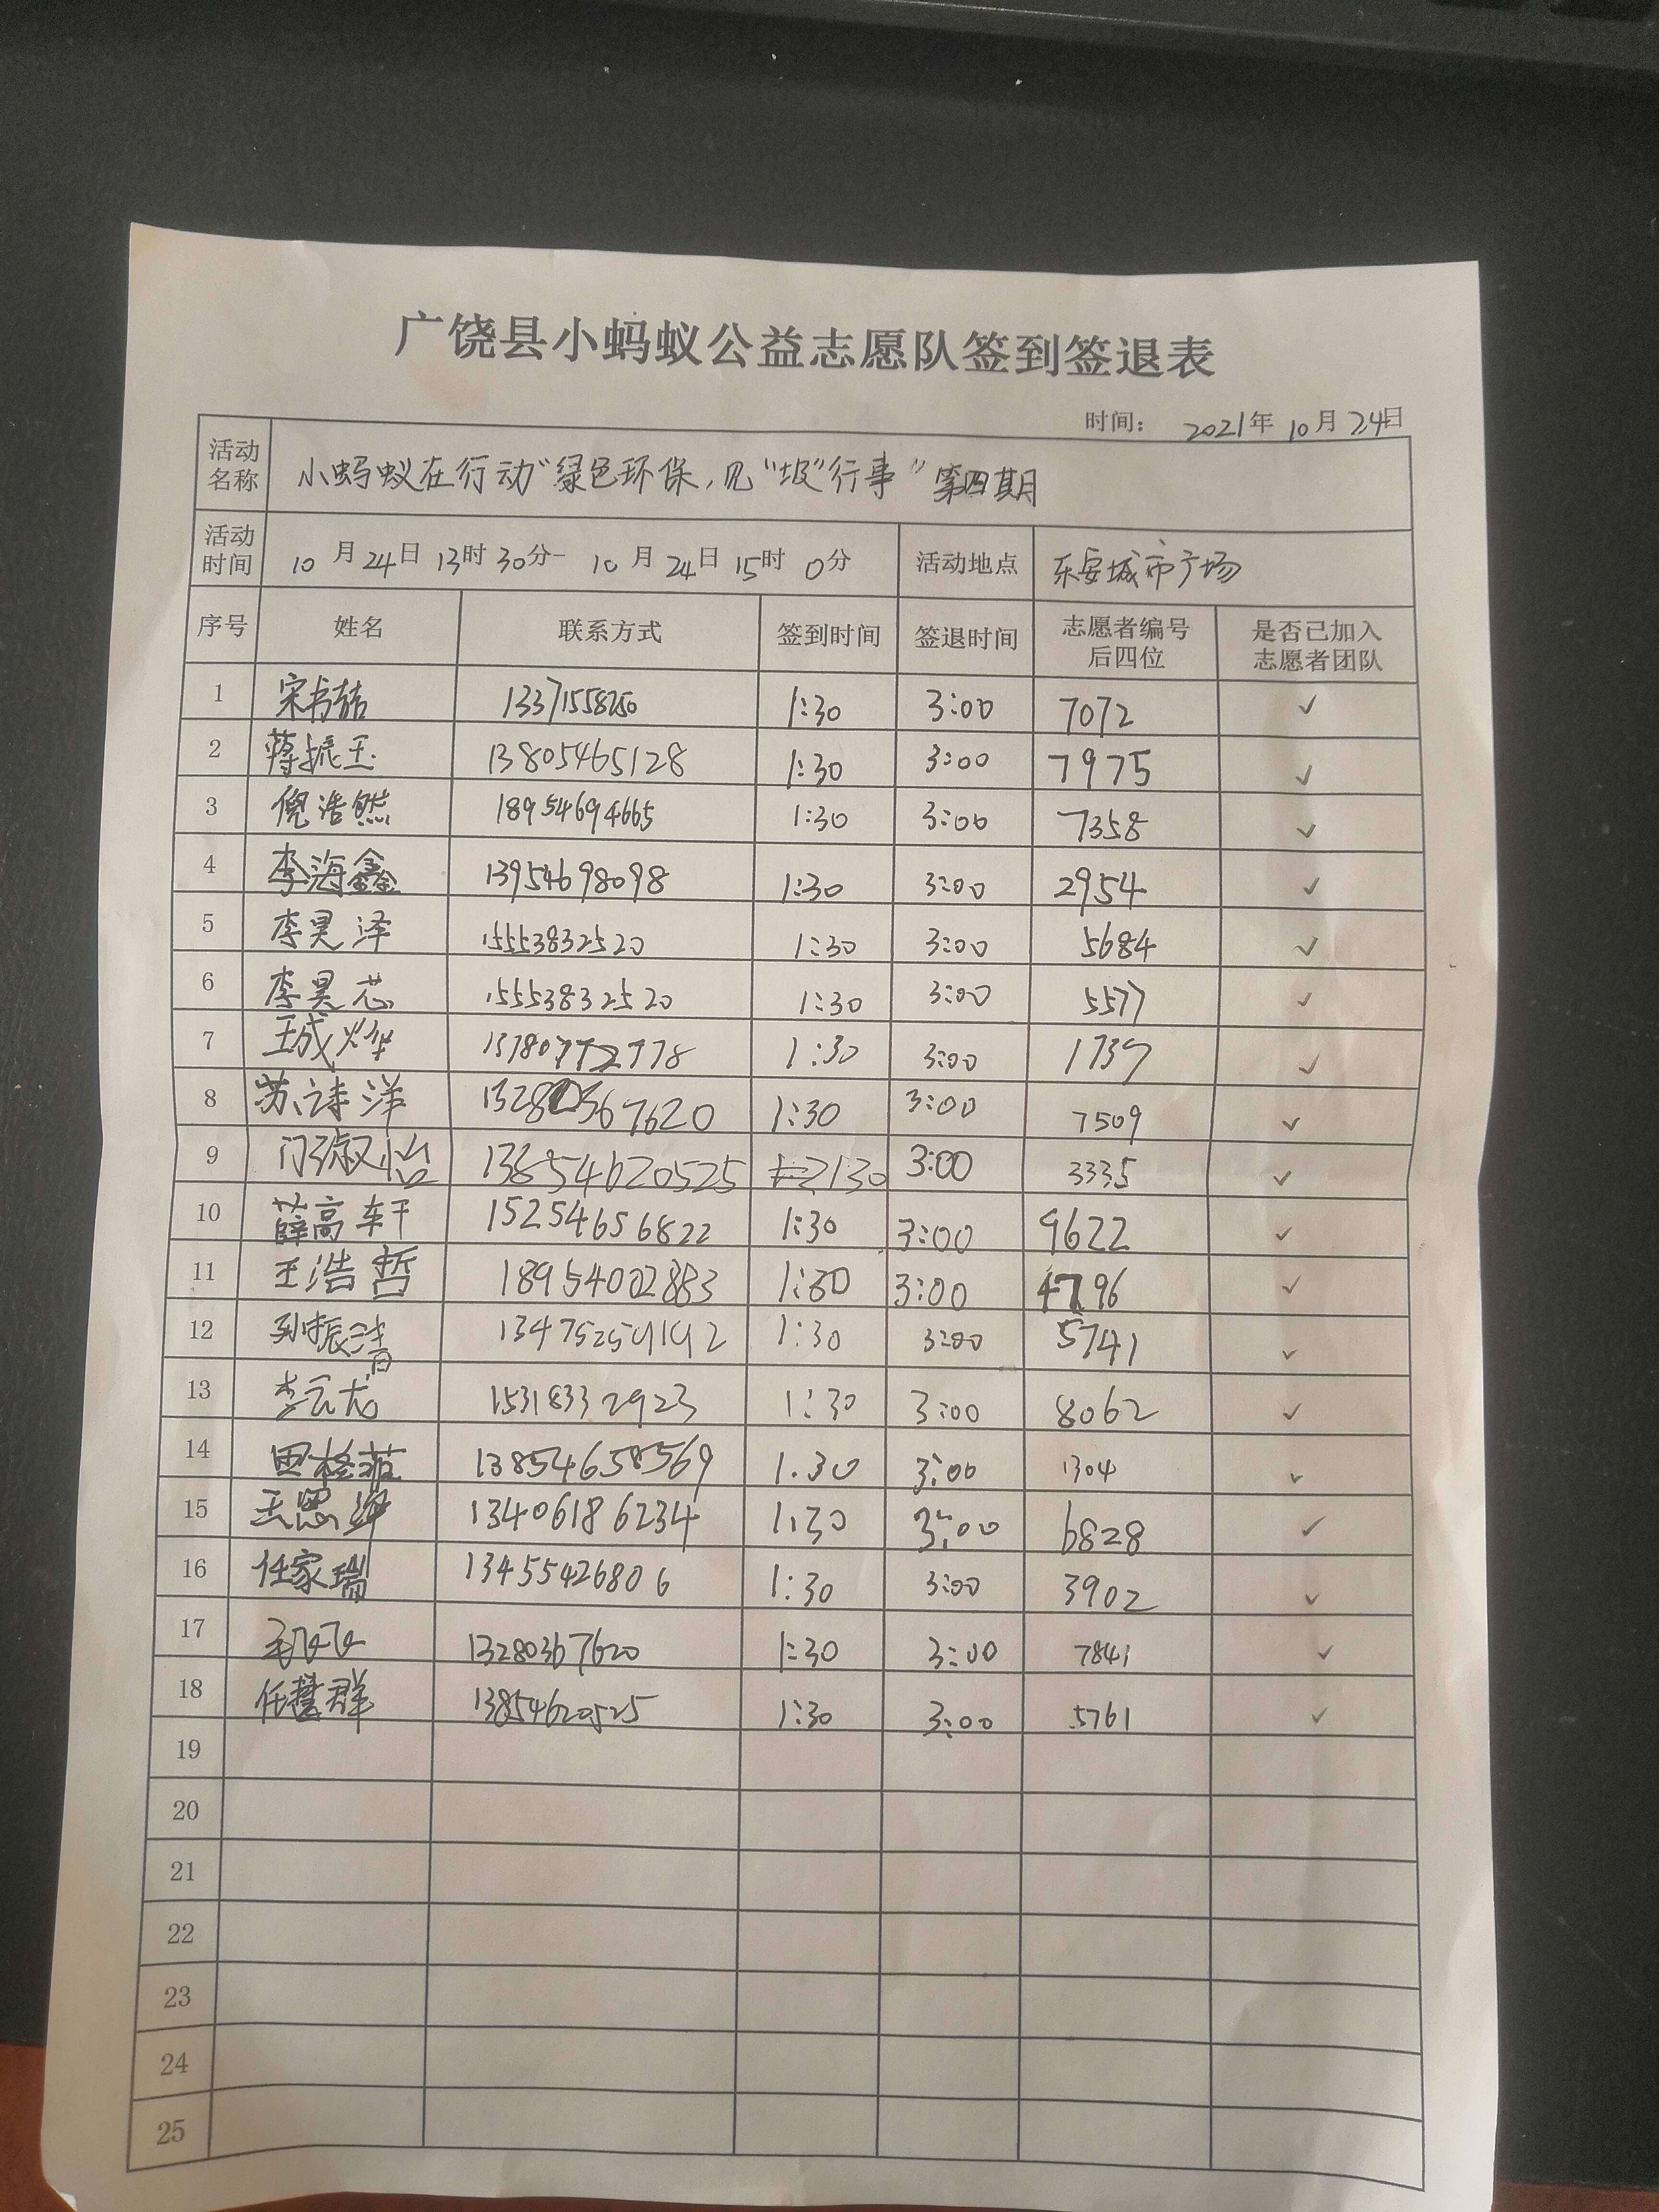 广饶县小蚂蚁公益志愿队签到签退表
时间： 2021年 10月 24日
活动名称 小蚂蚁在行动"绿色环保,见"圾"行事" 第四期
活动时间 10月24日13时30分- 10月24日15时0分 活动地点 乐安城市广场
序号 姓名 联系方式 签到时间 签退时间 志愿者编号后四位 是否已加入志愿者团队
1 宋书喆 13371558250 1:30 3:00 7072 ✓
2 蒋振玉 13805465128 1:30 3:00 7975 ✓
3 倪浩然 18954694665 1:30 3:00 7358 ✓
4 李海鑫 13954698098 1:30 3:00 2954 ✓
5 李昊泽 15553832520 1:30 3:00 5684 ✓
6 李昊芯 15553832520 1:30 3:00 5577 ✓
7 王成烨 1:30 3:00 1739 ✓
8 苏诗洋 13280367620 1:30 3:00 7509 ✓
9 门淑怡 13854620525 1:30 3:00 3335 ✓
10 薛高轩 15254656822 1:30 3:00 9622 ✓
11 王浩哲 18954002883 1:30 3:00 4796 ✓
12 孙振清 13475259192 1:30 3:00 5741 ✓
13 李云龙 15318332923 1:30 3:00 8062 ✓
14 13854658569 1:30 3:00 1304 ✓
15 13406186234 1:30 3:00 6828 ✓
16 任家瑞 13455426806 1:30 3:00 3902 ✓
17 13280367620 1:30 3:00 7841 ✓
18 任慧群 13854620525 1:30 3:00 5761 ✓
19
20
21
22
23
24
25